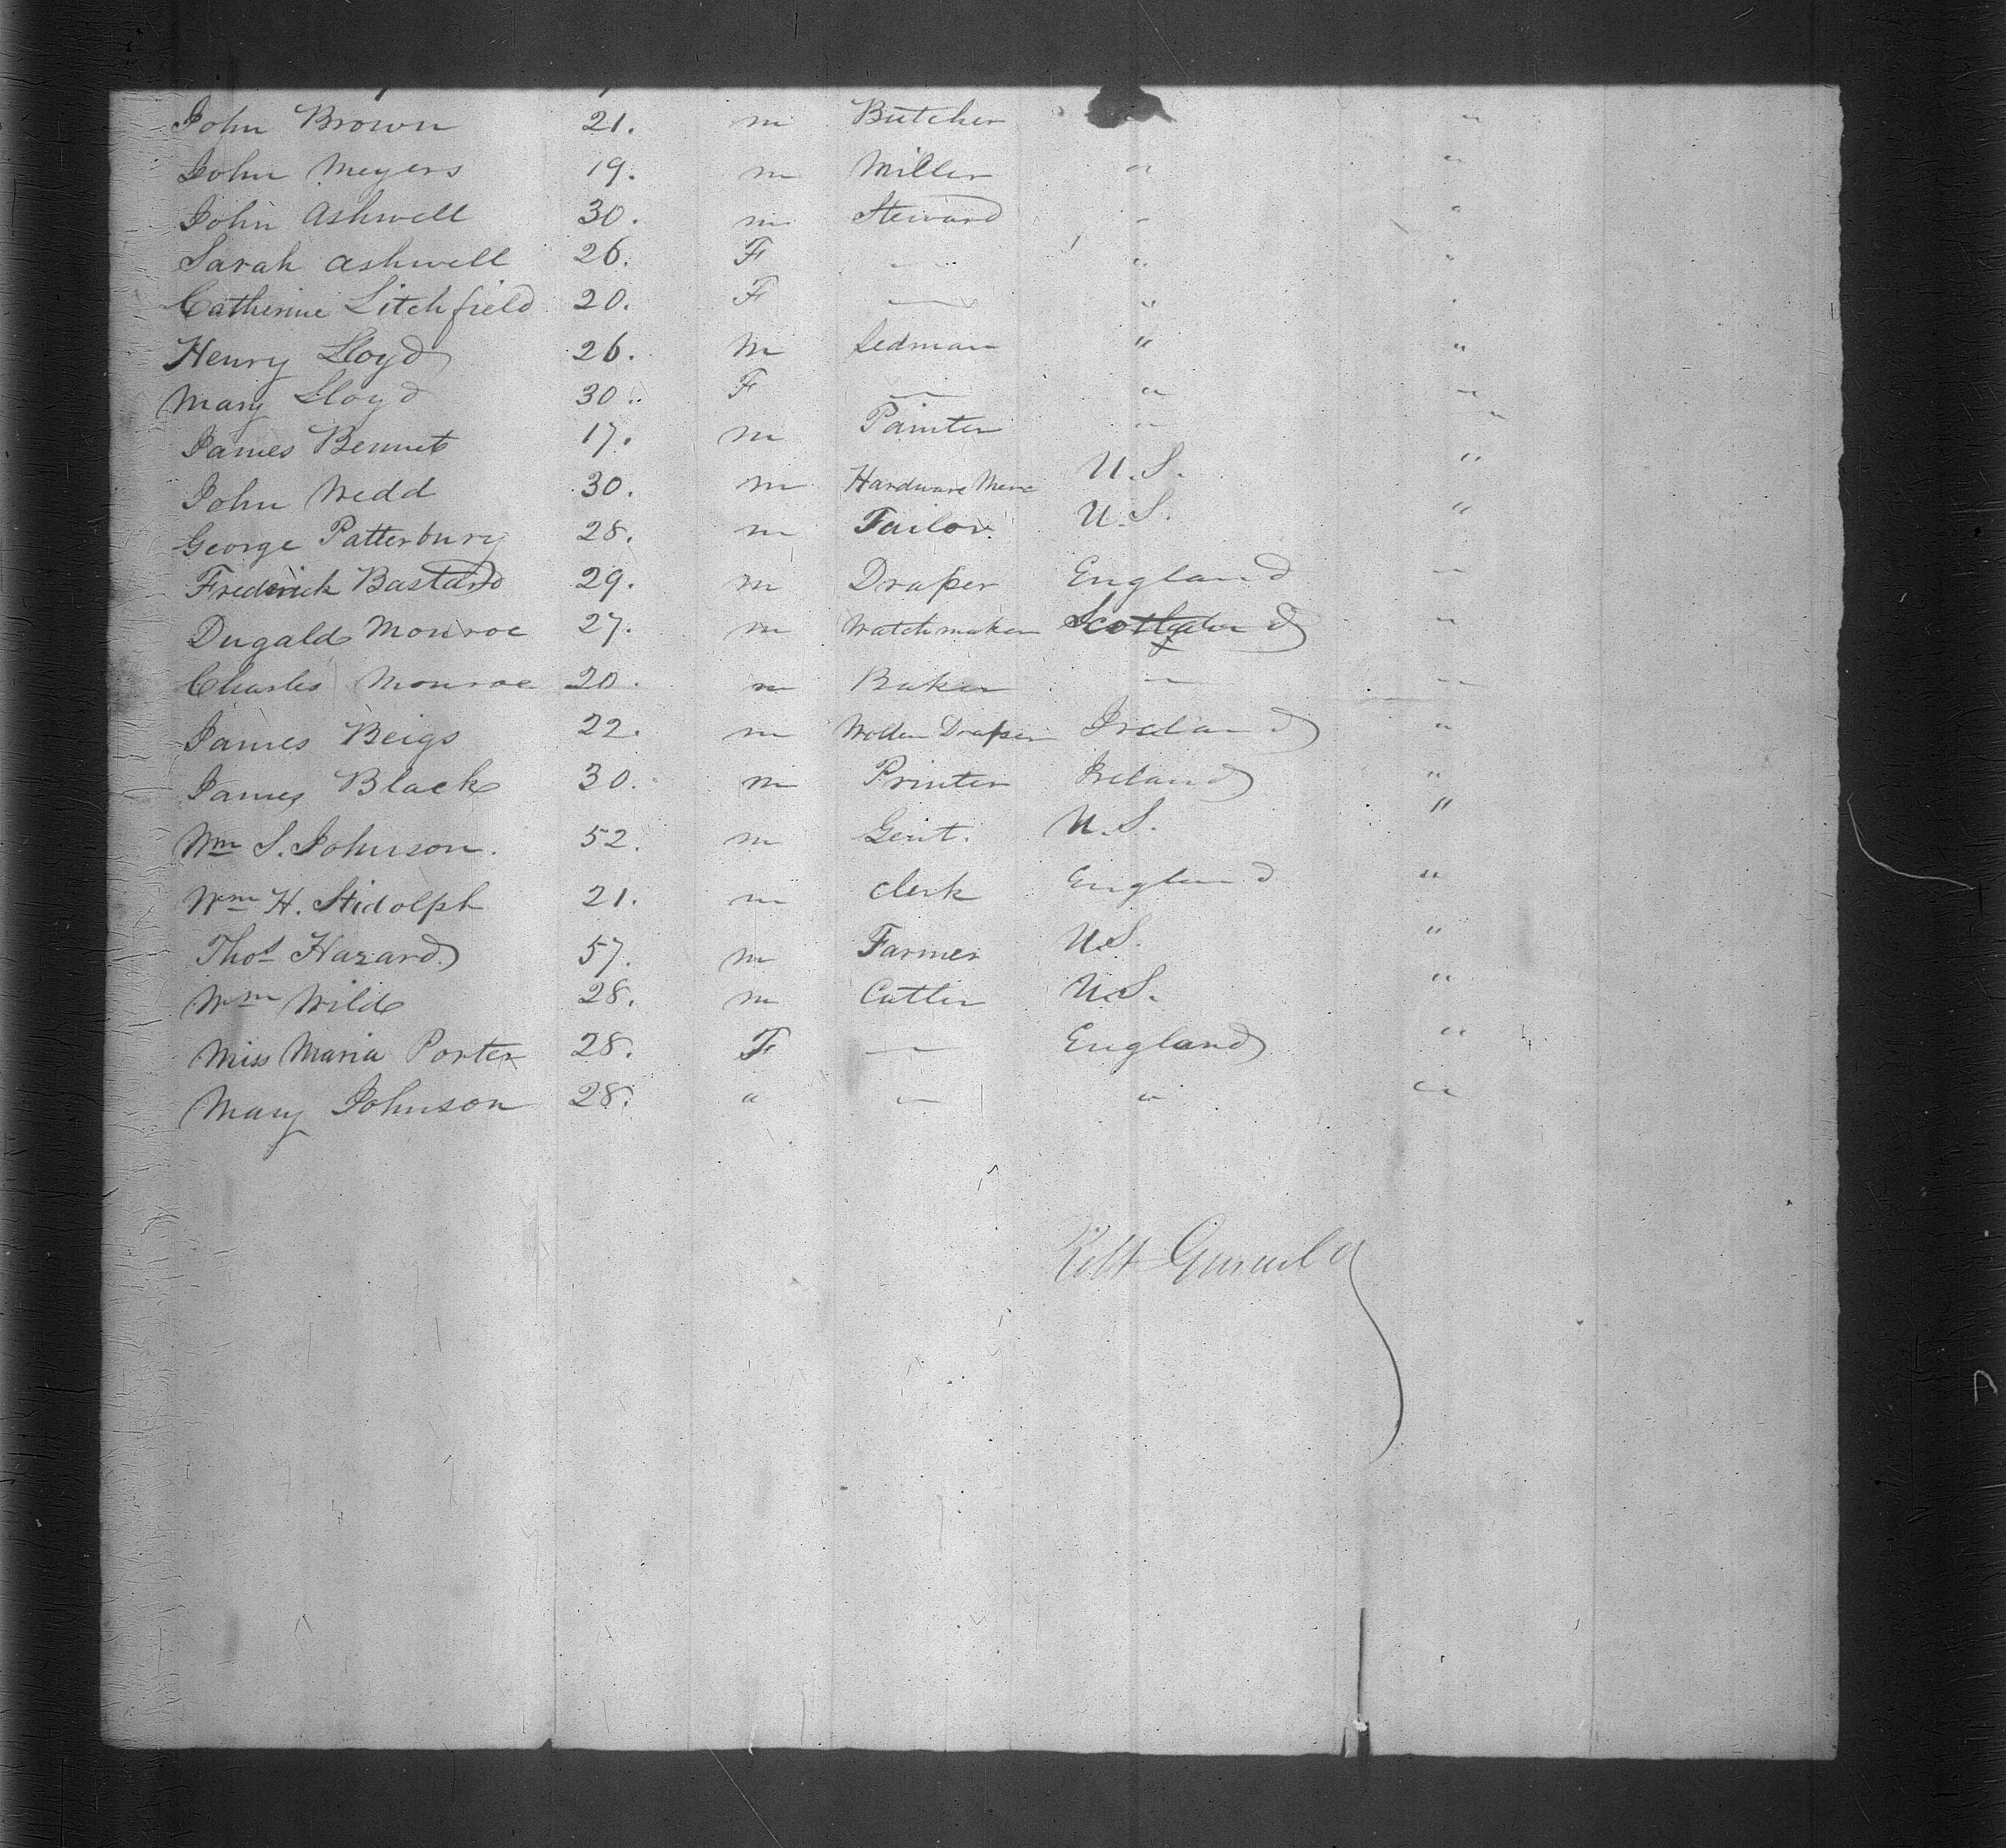 John Brown 21. m Butcher "
John Meyers 19. m Miller " "
John Ashwell 30. m Steward " "
Sarah Ashwell 26. F — " "
Catherine Litchfield 20. F — " "
Henry Lloyd 26. m " "
Mary Lloyd 30. F — " "
James Bennet 17. m Painter " "
John Wedd 30. m Hardware Merc U.S. "
George Patterbury 28. m Tailor U.S. "
Frederick Bastard 29. m Draper England "
Dugald Monroe 27. m Watchmaker Scotland "
Charles Monroe 20. m Baker " "
James Beigs 22. m Wollen Draper Ireland "
James Black 30. m Printer Ireland "
Wm S. Johnson. 52. m Gent. U.S. "
Wm H. Stidolph 21. m Clerk England "
Thos Hazard 57. m Farmer U.S. "
Wm Wild 28. m Cutler U.S. "
Miss Maria Porter 28. F — England "
Mary Johnson 28. " — " "
Robt